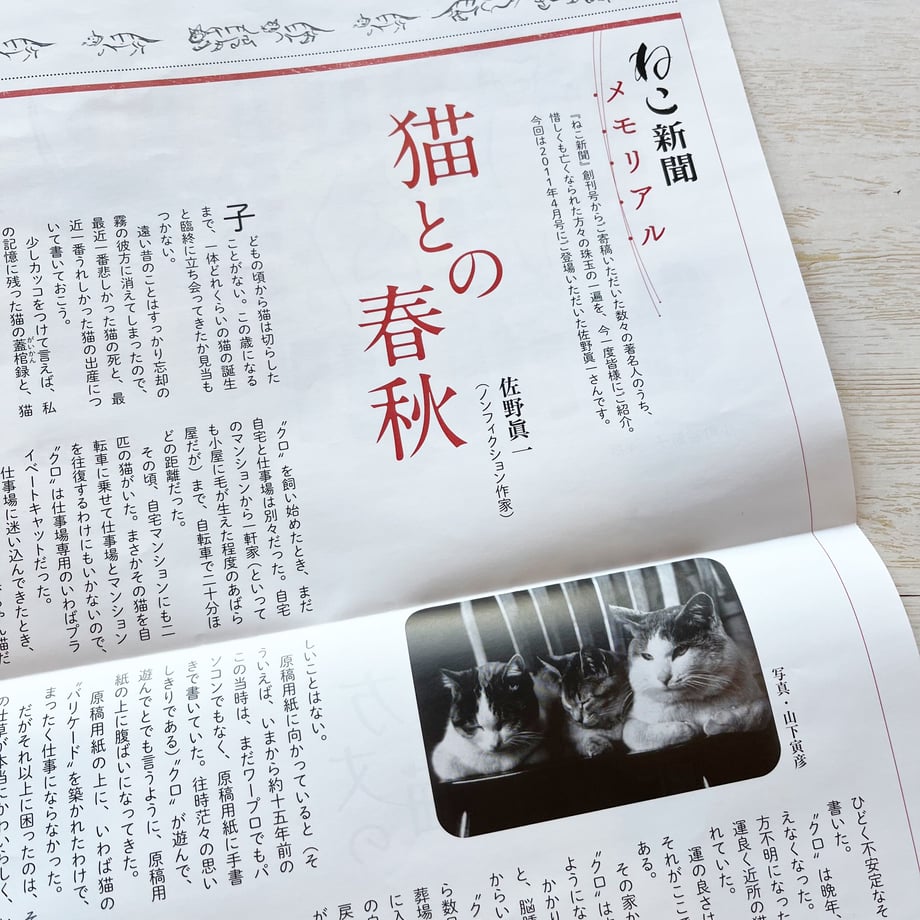 ねこ新聞
メモリアル
『ねこ新聞』創刊号からご寄稿いただいた数々の著名人のうち、
惜しくも亡くなられた方々の珠玉の一遍を、今一度皆様にご紹介。
今回は2011年4月号にご登場いただいた佐野眞一さんです。
猫との
春秋
佐野眞一
(ノンフィクション作家)
子どもの頃から猫は切らした
ことがない。この歳になる
まで、一体どれくらいの猫の誕生
と臨終に立ち会ってきたか見当も
つかない。
遠い昔のことはすっかり忘却の
霧の彼方に消えてしまったので、
最近一番悲しかった猫の死と、最
近一番うれしかった猫の出産につ
いて書いておこう。
少しカッコをつけて言えば、私
の記憶に残った猫の蓋棺録と、猫
がいかん
〝クロ〟を飼い始めたとき、まだ
自宅と仕事場は別々だった。自宅
のマンションから一軒家(といって
も小屋に毛が生えた程度のあばら
屋だが)まで、自転車で二十分ほ
どの距離だった。
その頃、自宅マンションにも二
匹の猫がいた。まさかその猫を自
転車に乗せて仕事場とマンション
を往復するわけにもいかないので、
〝クロ〟は仕事場専用のいわばプラ
イベートキャットだった。
仕事場に迷い込んできたとき、
写真・山下寅彦
しいことはない。
原稿用紙に向かっていると(そ
ういえば、いまから約十五年前の
この当時は、まだワープロでもパ
ソコンでもなく、原稿用紙に手書
きで書いていた。往時茫々の思い
しきりである)〝クロ〟が遊んで、
遊んでとでも言うように、原稿用
紙の上に腹ばいになってきた。
原稿用紙の上に、いわば猫の
〝バリケード〟を築かれたわけで、
まったく仕事にならなかった。
だがそれ以上に困ったのは、
の仕草が本当にかわいらしく、
ひどく不安定なそ
書いた。
〝クロ〟は晩年
えなくなった。
方不明になっ
運良く近所の猫
れていた。
運の良さ
それがここ
ある。
その家か
〝クロ〟は
ようにな
かかり
と、脳
からい
〝ク
ら数
葬場
に入